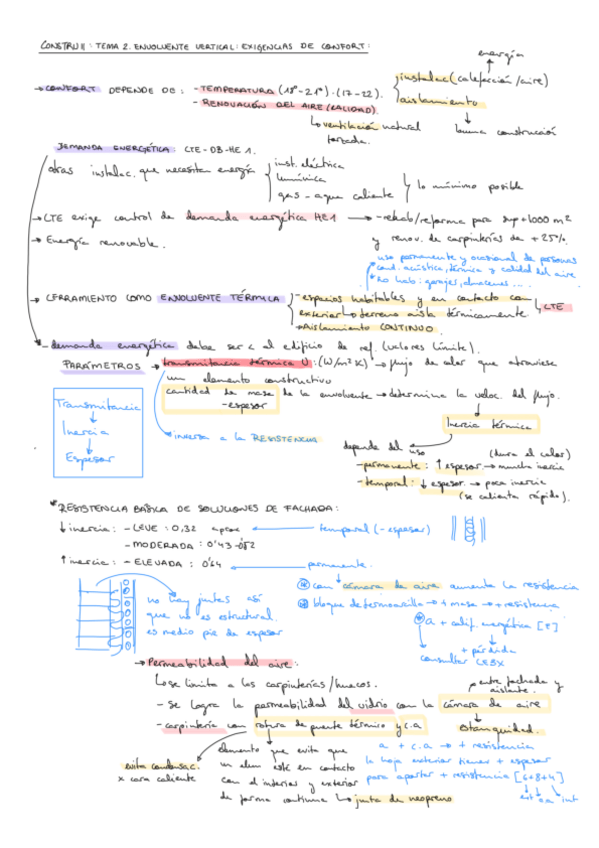 CONSTRU II: TEMA 2. ENVOLVENTE VERTICAL: EXIGENCIAS DE CONFORT:
energía
→ CONFORT DEPENDE DE: - TEMPERATURA (18º-21º)·(17-22).
instalac (calefacción/aire)
- RENOVACIÓN DEL AIRE (CALIDAD)
aislamiento
↳ ventilación natural
forzada.
buena construcción
DEMANDA ENERGÉTICA: CTE-DB-HE 1.
otras instalac. que necesitan energía
inst. eléctrica
lumínica
gas - agua caliente
lo mínimo posible
→ CTE exige control de demanda energética HE1 → - rehab/reforma para sup + 1000 m²
y renov. de carpinterías de + 25%.
→ Energía renovable.
uso permanente y ocasional de personas
cond. acústica, térmica y calidad del aire
* No hab: garajes, almacenes...
→ CERRAMIENTO COMO ENVOLVENTE TÉRMICA
- espacios habitables y en contacto con
exterior ↳ terreno aisla térmicamente
CTE
→ Aislamiento CONTINUO
- demanda energética debe ser < al edificio de ref. (valores límite).
PARÁMETROS → transmitancia térmica U: (W/m²K) → flujo de calor que atraviese
un elemento constructivo
cantidad de masa de la envolvente → determina la veloc. del flujo.
- espesor
Transmitancia
↓
Inercia
↓
Espesor
* inversa a la RESISTENCIA
Inercia térmica
depende del uso
(dura el calor)
- permanente: ↑ espesor → mucha inercia
- temporal: ↓ espesor → poca inercia
(se calienta rápido).
* RESISTENCIA BÁSICA DE SOLUCIONES DE FACHADA:
↓ inercia: - LEVE: 0,32
temporal (- espesor)
- MODERADA: 0'43-0'52
↑ inercia: - ELEVADA: 0'64
permanente.
no hay juntas así
que no es estructural.
es medio pie de espesor
* con cámara de aire aumenta la resistencia
* bloque de termoarcilla → + masa → + resistencia
* a + calif. energética [F]
+ pérdida
consultar CE3X
→ Permeabilidad del aire:
↳ se limita a las carpinterías/huecos.
entre fachada y
aislante.
- se logra la permeabilidad del vidrio con la cámara de aire
- carpintería con rotura de puente térmico y c.a
Estanquidad.
evita condensac.
x cara caliente
Elemento que evita que
un elem esté en contacto
con el interior y exterior
de forma continua ↳ junta de neopreno
a + c.a → + resistencia
la hoja exterior tiene + espesor
para aportar + resistencia [6+8+4]
ext ca int